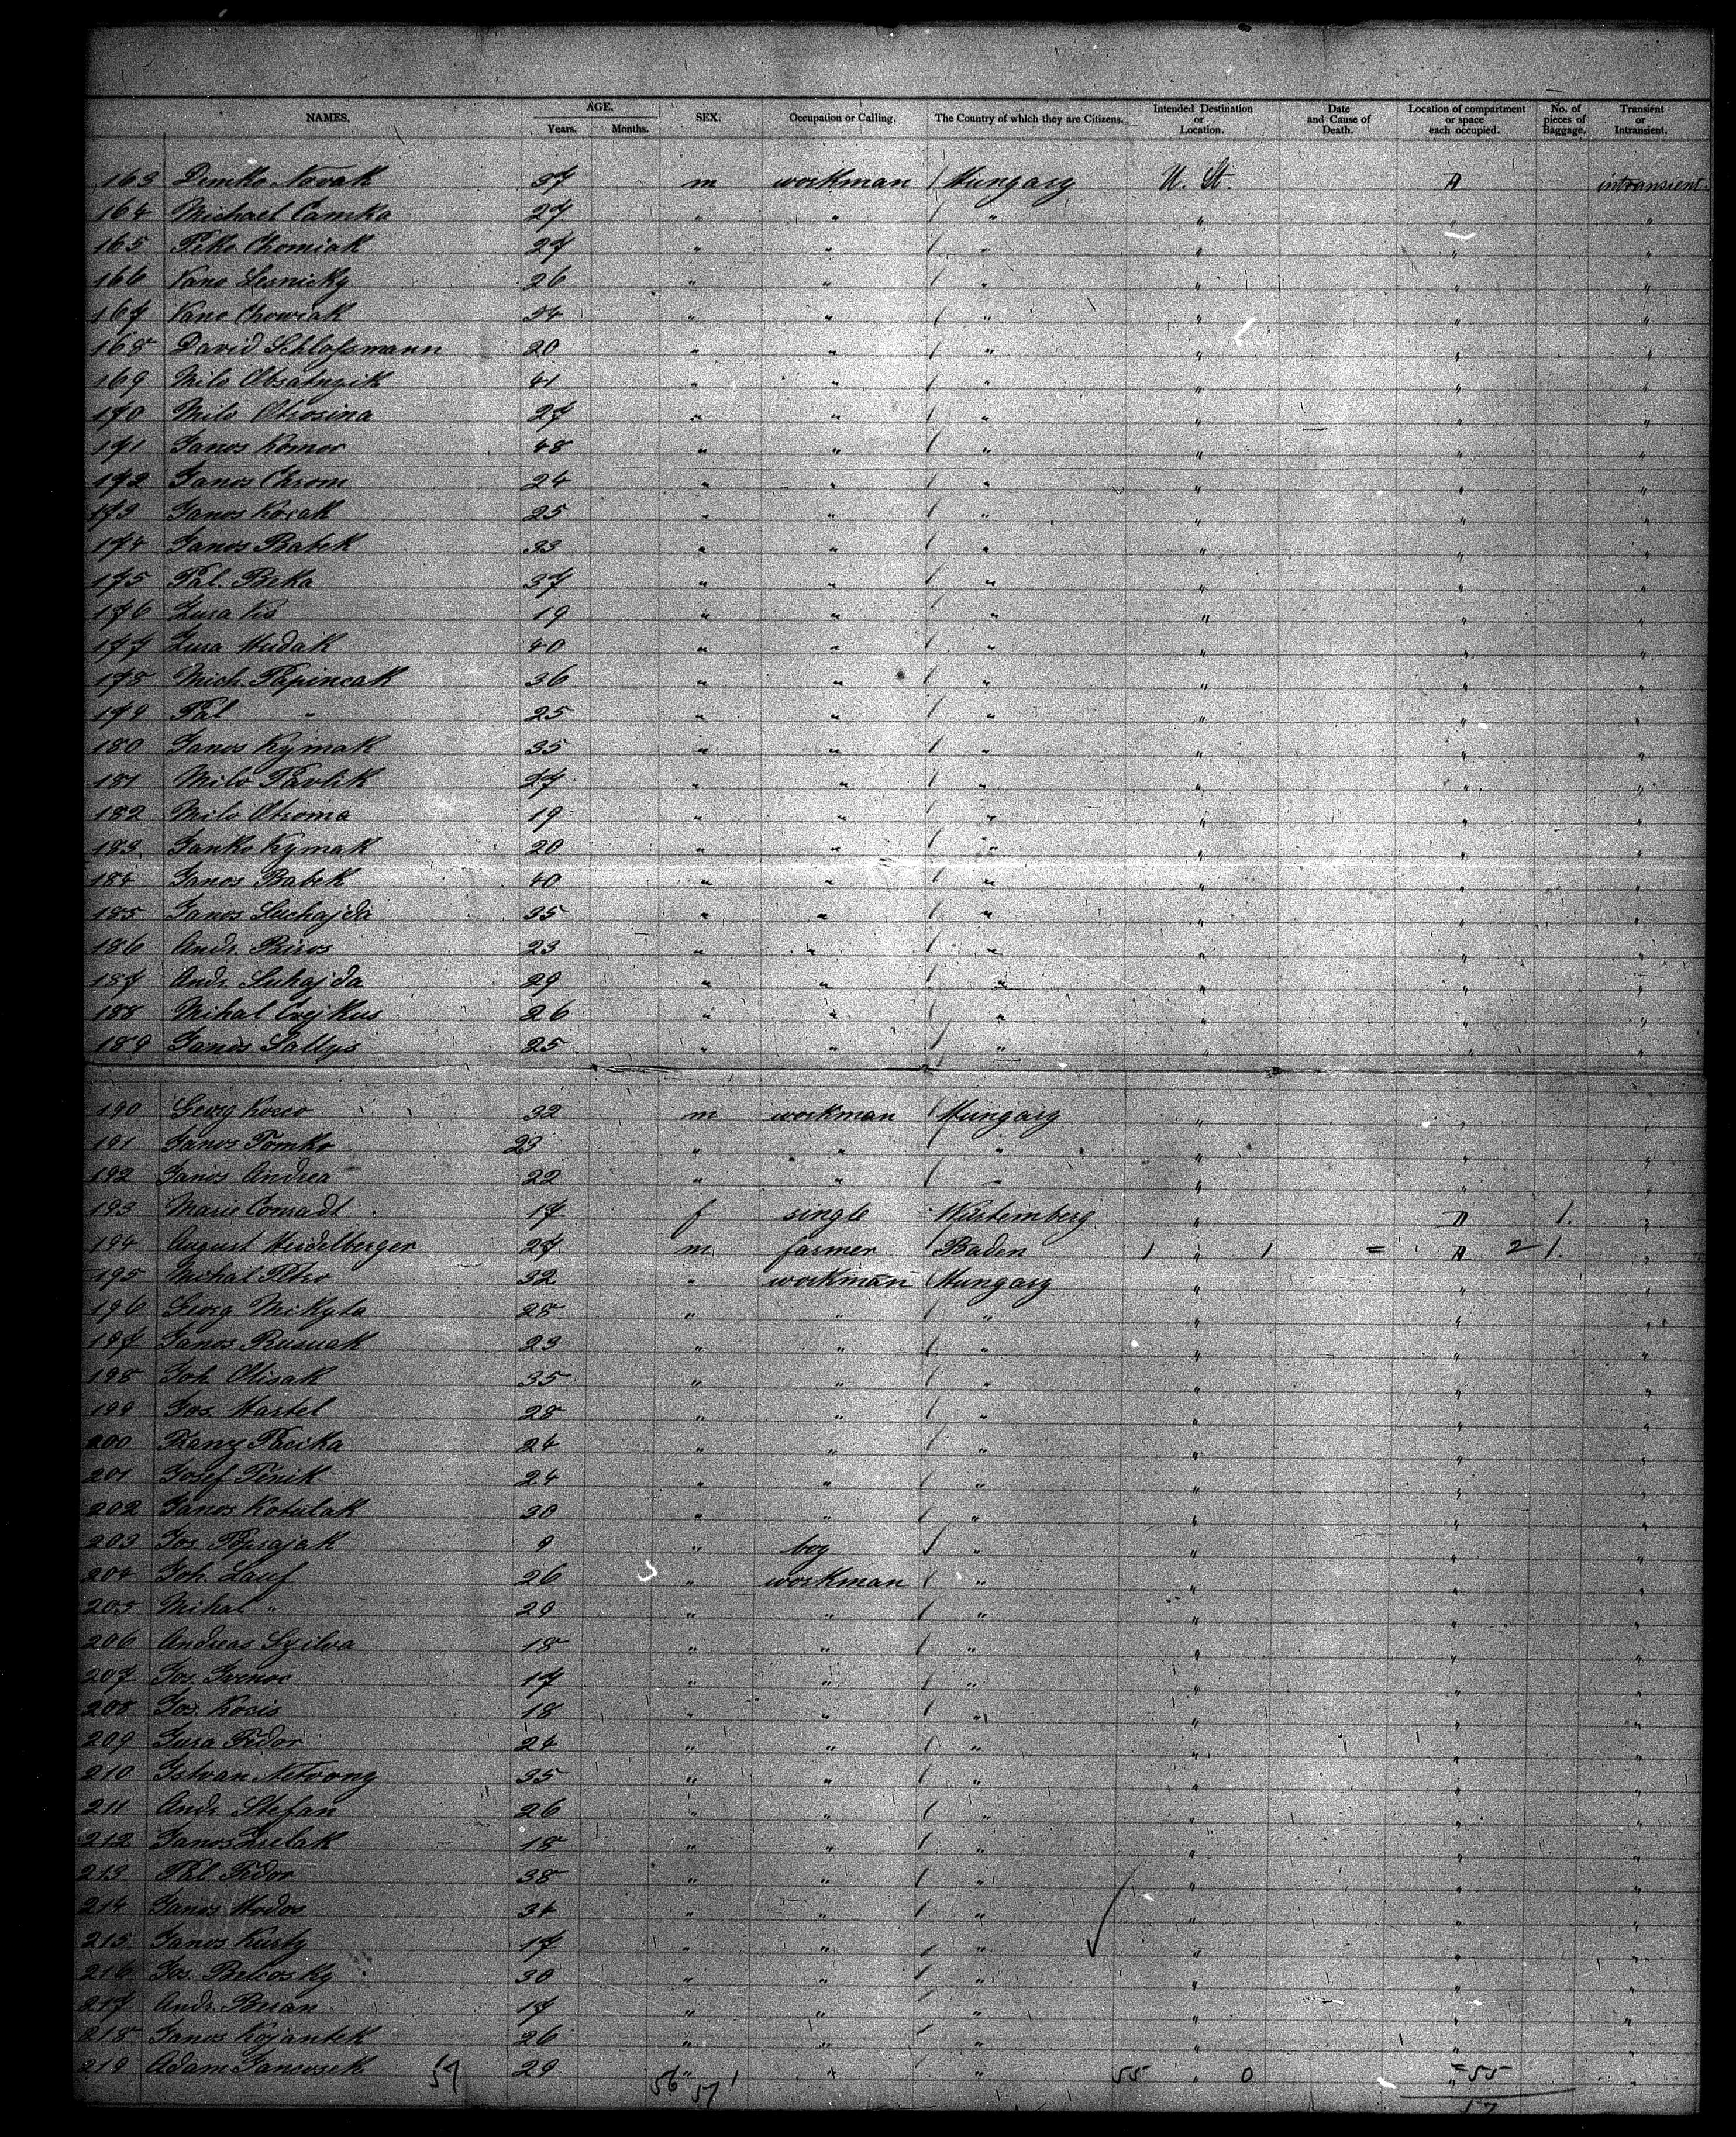 NAMES. AGE. SEX. Occupation or Calling. The Country of which they are Citizens. Intended Destination or Location. Date and Cause of Death. Location of compartment or space each occupied. No. of pieces of Baggage. Transient or Intransient.
Years. Months.
163 Demko Novak 37 m workman Hungary U. St. A intransient.
164 Michael Camka 27 " " " " " "
165 Petko Chomiak 27 " " " " " "
166 Vano Lesnicky 26 " " " " " "
167 Vano Chowiak 34 " " " " " "
168 David Schlossmann 20 " " " " " "
169 Milo Obsatnzik 41 " " " " " "
170 Milo Otrosina 27 " " " " " "
171 Janos Komor 48 " " " " " "
172 Janos Chrom 24 " " " " " "
173 Janos Kocak 25 " " " " " "
174 Janos Babek 33 " " " " " "
175 Pal. Beka 37 " " " " " "
176 Zura Kis 19 " " " " " "
177 Zura Hudak 40 " " " " " "
178 Mich. Papincak 36 " " " " " "
179 Pal " 25 " " " " " "
180 Janos Kymak 35 " " " " " "
181 Milo Pavlik 27 " " " " " "
182 Milo Otroina 19 " " " " " "
183 Janko Kymak 20 " " " " " "
184 Janos Babek 40 " " " " " "
185 Janos Suchajda 35 " " " " " "
186 Andr. Biros 23 " " " " " "
187 Andr. Suhajda 29 " " " " " "
188 Mihal Crejkus 26 " " " " " "
189 Janos Sallys 25 " " " " " "
190 Georg Kosco 32 m workman Hungary " " "
191 Janos Tomko 23 " " " " " "
192 Janos Andrea 22 " " " " " "
193 Marie Conradt 17 f single Würtemberg " A 1. "
194 August Heidelberger 27 m farmer Baden 1 " 1 = A 2 1. "
195 Mihal Petro 32 " workman Hungary " " "
196 Georg Mikyta 28 " " " " " "
197 Janos Rusnak 23 " " " " " "
198 Joh. Olisak 35 " " " " " "
199 Jos. Hartel 28 " " " " " "
200 Franz Pacika 24 " " " " " "
201 Josef Penik 24 " " " " " "
202 Janos Kotulak 30 " " " " " "
203 Jos. Popsajak 9 " boy " " " "
204 Joh. Lauf 26 " workman " " " "
205 Mihal " 29 " " " " " "
206 Andreas Szilva 18 " " " " " "
207 Jos. Ivenoc 17 " " " " " "
208 Jos. Kocis 18 " " " " " "
209 Jura Fedor 24 " " " " " "
210 Istvan 35 " " " " " "
211 Andr. Stefan 26 " " " " " "
212 Janos Zielak 18 " " " " " "
213 Pal. Fedor 38 " " " " " "
214 Janos Hodos 34 " " " " " "
215 Janos Kusty 17 " " " " " "
216 Jos. Belcosky 30 " " " " " "
217 Andr. Beran 17 " " " " " "
218 Janos Kojantek 26 " " " " " "
219 Adam Jancosek 29 " " " " " "
57 56 57 1 55 0 = 55
57